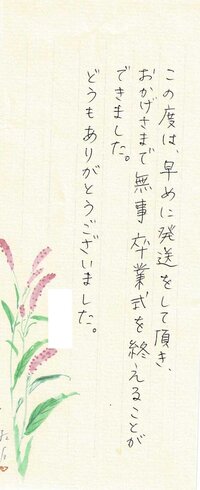 この度は、早めに発送をして頂き、
おかげさまで無事卒業式を終えることが
できました。
どうもありがとうございました。